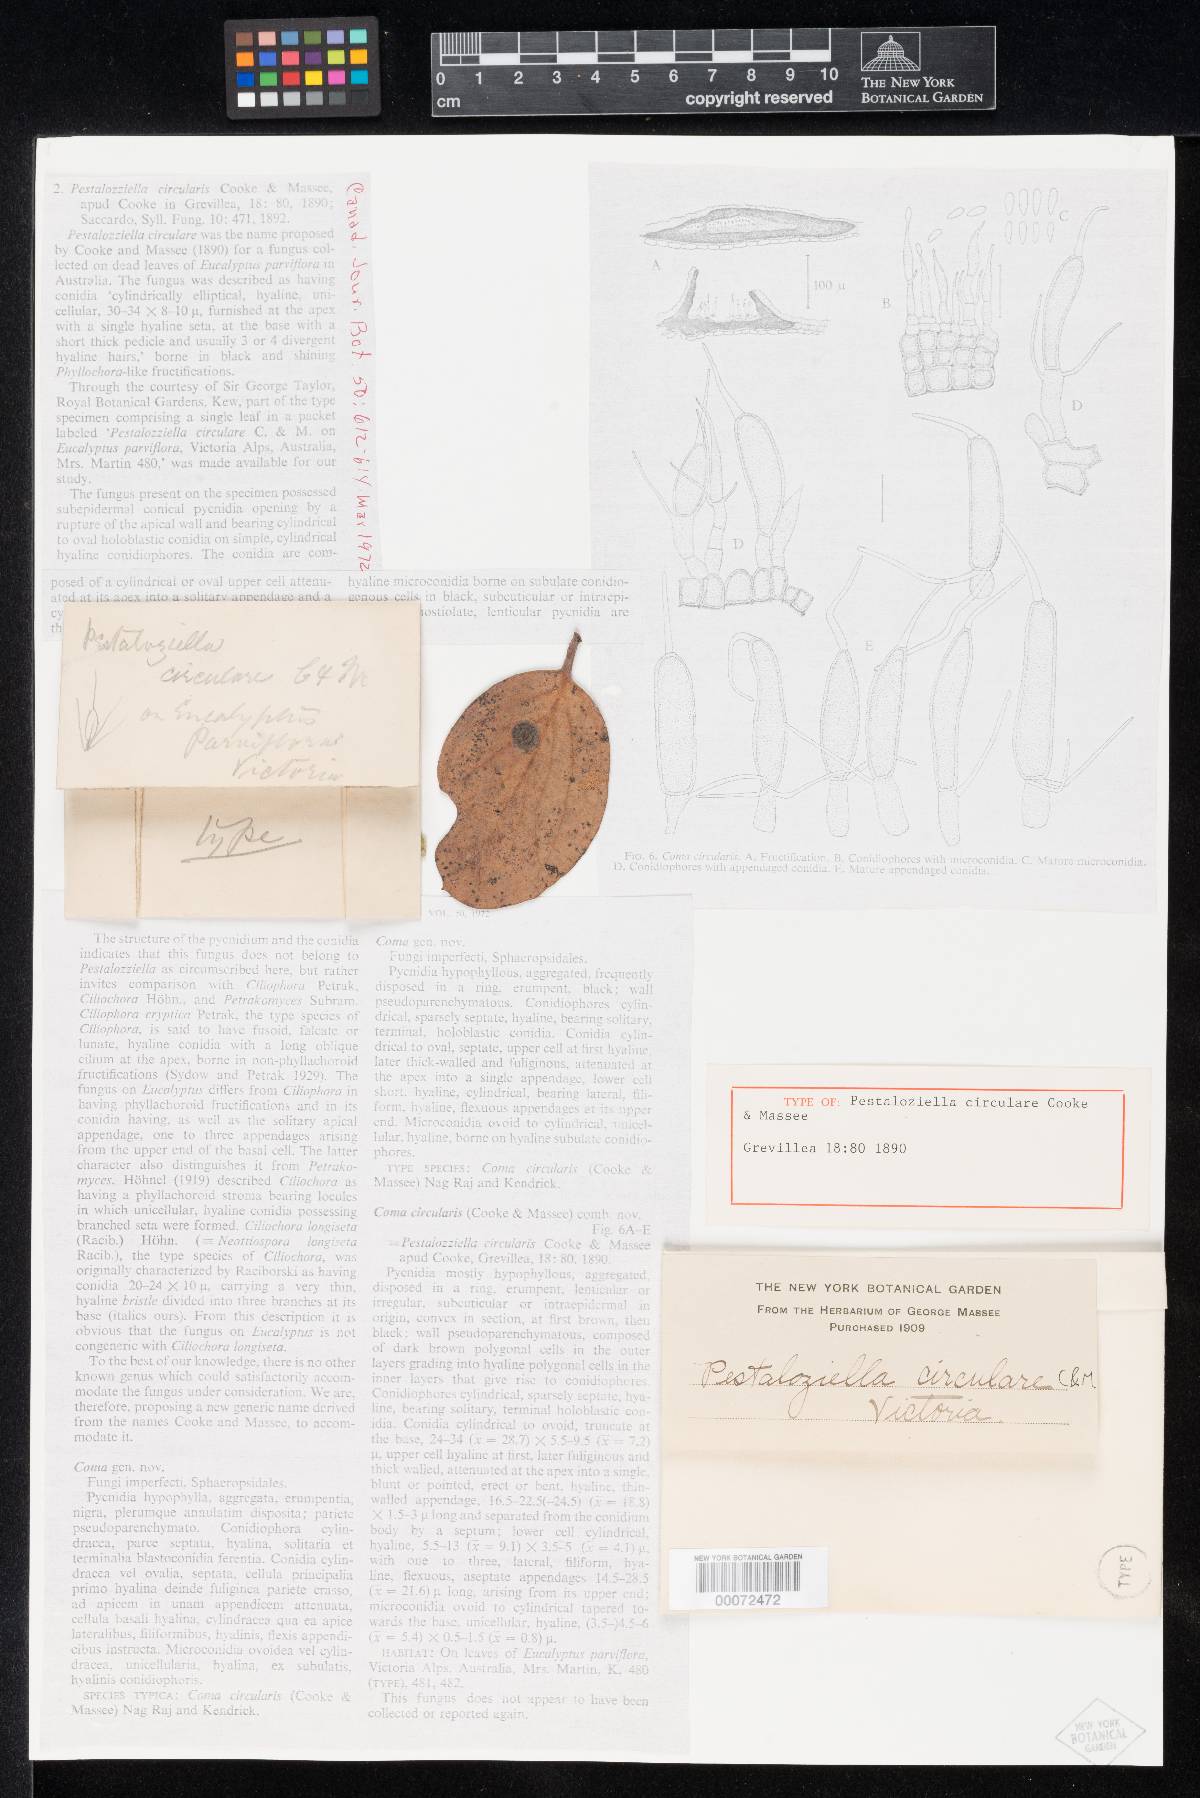 0 1 2 3 4 5 6 7 8 9 10
cm
copyright reserved
THE NEW YORK
BOTANICAL GARDEN
2. Pestalozziella circularis Cooke & Massee,
apud Cooke in Grevillea, 18: 80, 1890;
Saccardo, Syll. Fung. 10: 471, 1892.
Pestalozziella circulare was the name proposed
by Cooke and Massee (1890) for a fungus col-
lected on dead leaves of Eucalyptus parviflora in
Australia. The fungus was described as having
conidia 'cylindrically elliptical, hyaline, uni-
cellular, 30–34 × 8–10 μ, furnished at the apex
with a single hyaline seta, at the base with a
short thick pedicle and usually 3 or 4 divergent
hyaline hairs,' borne in black and shining
Phyllochora-like fructifications.
Through the courtesy of Sir George Taylor,
Royal Botanical Gardens, Kew, part of the type
specimen comprising a single leaf in a packet
labeled 'Pestalozziella circulare C. & M. on
Eucalyptus parviflora, Victoria Alps, Australia,
Mrs. Martin 480,' was made available for our
study.
The fungus present on the specimen possessed
subepidermal conical pycnidia opening by a
rupture of the apical wall and bearing cylindrical
to oval holoblastic conidia on simple, cylindrical
hyaline conidiophores. The conidia are com-
Canad. Jour. Bot. 50: 612-614 Mar 1972
posed of a cylindrical or oval upper cell attenu-
ated at its apex into a solitary appendage and a
hyaline microconidia borne on subulate conidio-
genous cells in black, subcuticular or intraepi-
ostiolate, lenticular pycnidia are
A
100 μ
B
C
D
D
E
FIG. 6. Coma circularis. A. Fructification. B. Conidiophores with microconidia. C. Mature microconidia.
D. Conidiophores with appendaged conidia. E. Mature appendaged conidia.
Pestaloziella
circulare C & M
on Eucalyptus
Parviflorus
Victoria
type
VOL. 50, 1972
The structure of the pycnidium and the conidia
indicates that this fungus does not belong to
Pestalozziella as circumscribed here, but rather
invites comparison with Ciliophora Petrak,
Ciliochora Höhn., and Petrakomyces Subram.
Ciliophora cryptica Petrak, the type species of
Ciliophora, is said to have fusoid, falcate or
lunate, hyaline conidia with a long oblique
cilium at the apex, borne in non-phyllachoroid
fructifications (Sydow and Petrak 1929). The
fungus on Eucalyptus differs from Ciliophora in
having phyllachoroid fructifications and in its
conidia having, as well as the solitary apical
appendage, one to three appendages arising
from the upper end of the basal cell. The latter
character also distinguishes it from Petrako-
myces. Höhnel (1919) described Ciliochora as
having a phyllachoroid stroma bearing locules
in which unicellular, hyaline conidia possessing
branched seta were formed. Ciliochora longiseta
(Racib.) Höhn. (= Neottiospora longiseta
Racib.), the type species of Ciliochora, was
originally characterized by Raciborski as having
conidia 20–24 × 10 μ, carrying a very thin,
hyaline bristle divided into three branches at its
base (italics ours). From this description it is
obvious that the fungus on Eucalyptus is not
congeneric with Ciliochora longiseta.
To the best of our knowledge, there is no other
known genus which could satisfactorily accom-
modate the fungus under consideration. We are,
therefore, proposing a new generic name derived
from the names Cooke and Massee, to accom-
modate it.
Coma gen. nov.
Fungi imperfecti, Sphaeropsidales.
Pycnidia hypophylla, aggregata, erumpentia,
nigra, plerumque annulatim disposita; pariete
pseudoparenchymato. Conidiophora cylin-
dracea, parce septata, hyalina, solitaria et
terminalia blastoconidia ferentia. Conidia cylin-
dracea vel ovalia, septata, cellula principalia
primo hyalina deinde fuliginea pariete crasso,
ad apicem in unam appendicem attenuata,
cellula basali hyalina, cylindracea qua ea apice
lateralibus, filiformibus, hyalinis, flexis appendi-
cibus instructa. Microconidia ovoidea vel cylin-
dracea, unicellularia, hyalina, ex subulatis,
hyalinis conidiophoris.
SPECIES TYPICA: Coma circularis (Cooke &
Massee) Nag Raj and Kendrick.
Coma gen. nov.
Fungi imperfecti, Sphaeropsidales.
Pycnidia hypophyllous, aggregated, frequently
disposed in a ring, erumpent, black; wall
pseudoparenchymatous. Conidiophores cylin-
drical, sparsely septate, hyaline, bearing solitary,
terminal, holoblastic conidia. Conidia cylin-
drical to oval, septate, upper cell at first hyaline,
later thick-walled and fuliginous, attenuated at
the apex into a single appendage, lower cell
short, hyaline, cylindrical, bearing lateral, fili-
form, hyaline, flexuous appendages at its upper
end. Microconidia ovoid to cylindrical, unicel-
lular, hyaline, borne on hyaline subulate conidio-
phores.
TYPE SPECIES: Coma circularis (Cooke &
Massee) Nag Raj and Kendrick.
Coma circularis (Cooke & Massee) comb. nov.
Fig. 6A–E
=Pestalozziella circularis Cooke & Massee
apud Cooke, Grevillea, 18: 80, 1890.
Pycnidia mostly hypophyllous, aggregated,
disposed in a ring, erumpent, lenticular or
irregular, subcuticular or intraepidermal in
origin, convex in section, at first brown, then
black; wall pseudoparenchymatous, composed
of dark brown polygonal cells in the outer
layers grading into hyaline polygonal cells in the
inner layers that give rise to conidiophores.
Conidiophores cylindrical, sparsely septate, hya-
line, bearing solitary, terminal holoblastic con-
idia. Conidia cylindrical to ovoid, truncate at
the base, 24–34 (x̄ = 28.7) × 5.5–9.5 (x̄ = 7.2)
μ, upper cell hyaline at first, later fuliginous and
thick walled, attenuated at the apex into a single,
blunt or pointed, erect or bent, hyaline, thin-
walled appendage, 16.5–22.5(–24.5) (x̄ = 18.8)
× 1.5–3 μ long and separated from the conidium
body by a septum; lower cell cylindrical,
hyaline, 5.5–13 (x̄ = 9.1) × 3.5–5 (x̄ = 4.1) μ,
with one to three, lateral, filiform, hya-
line, flexuous, aseptate appendages 14.5–28.5
(x̄ = 21.6) μ long, arising from its upper end;
microconidia ovoid to cylindrical tapered to-
wards the base, unicellular, hyaline, (3.5–)4.5–6
(x̄ = 5.4) × 0.5–1.5 (x̄ = 0.8) μ.
HABITAT: On leaves of Eucalyptus parviflora,
Victoria Alps, Australia, Mrs. Martin, K. 480
(TYPE), 481, 482.
This fungus does not appear to have been
collected or reported again.
TYPE OF: Pestaloziella circulare Cooke
& Massee
Grevillea 18:80 1890
THE NEW YORK BOTANICAL GARDEN
FROM THE HERBARIUM OF GEORGE MASSEE
PURCHASED 1909
Pestaloziella circulare C&M
Victoria.
NEW YORK BOTANICAL GARDEN
00072472
TYPE
NEW YORK
BOTANICAL
GARDEN